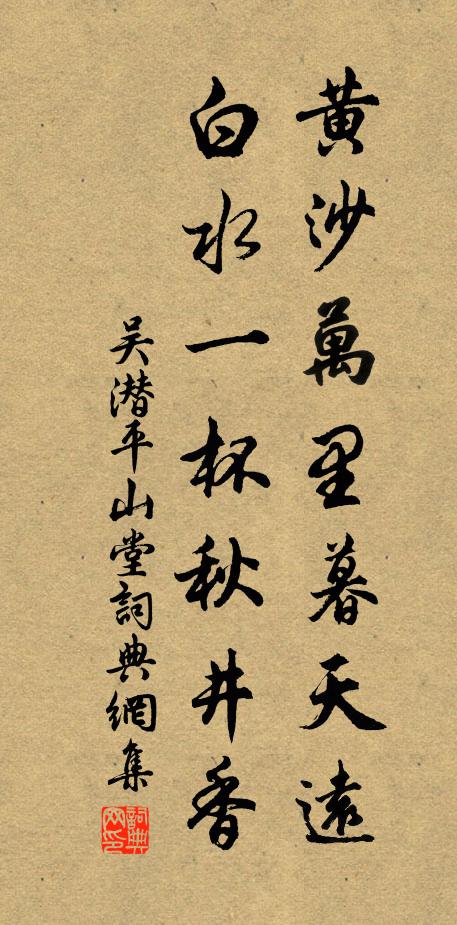 黄沙萬里暮天遠
白水一杯秋井香
吴潜平山堂詞典網集
詞典網印